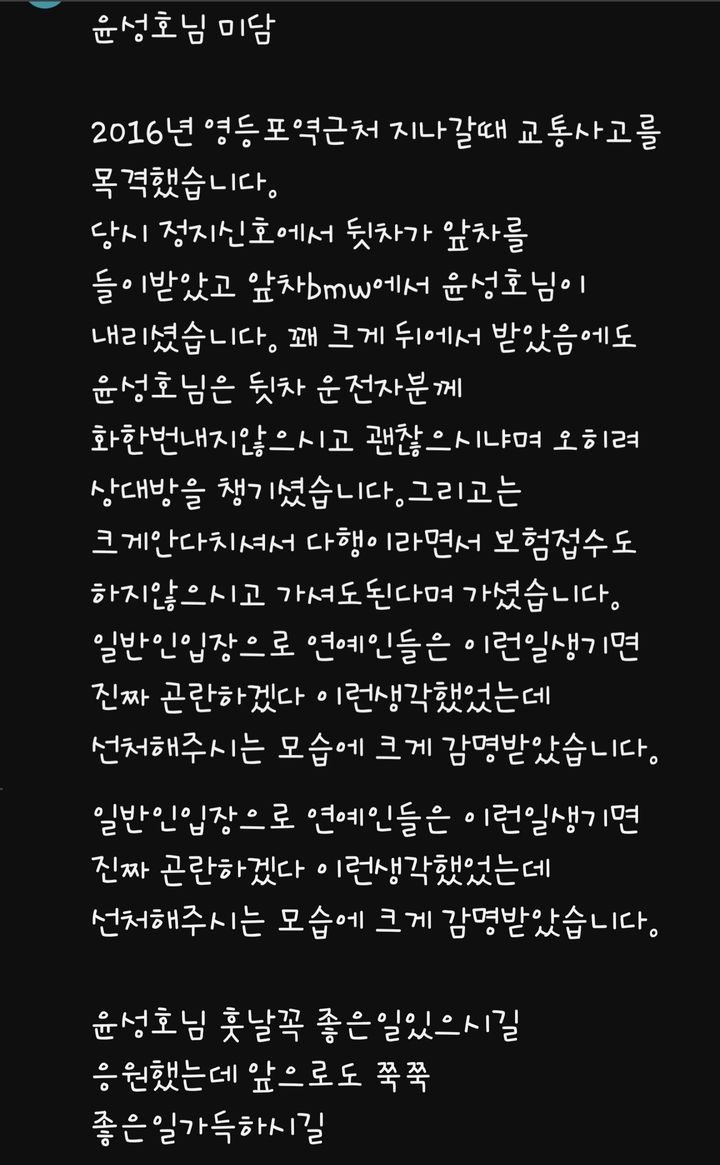 윤성호님 미담
2016년 영등포역근처 지나갈때 교통사고를
목격했습니다.
당시 정지신호에서 뒷차가 앞차를
들이받았고 앞차bmw에서 윤성호님이
내리셨습니다. 꽤 크게 뒤에서 받았음에도
윤성호님은 뒷차 운전자분께
화한번내지않으시고 괜찮으시냐며 오히려
상대방을 챙기셨습니다.그리고는
크게안다치셔서 다행이라면서 보험접수도
하지않으시고 가셔도된다며 가셨습니다.
일반인입장으로 연예인들은 이런일생기면
진짜 곤란하겠다 이런생각했었는데
선처해주시는 모습에 크게 감명받았습니다.
일반인입장으로 연예인들은 이런일생기면
진짜 곤란하겠다 이런생각했었는데
선처해주시는 모습에 크게 감명받았습니다.
윤성호님 훗날꼭 좋은일있으시길
응원했는데 앞으로도 쭉쭉
좋은일가득하시길